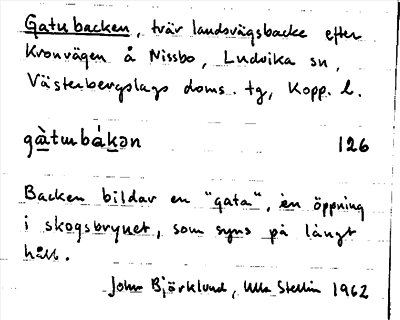 Gatubacken, tvär landsvägsbacke efter
Kronvägen å Nissbo, Ludvika sn,
Västerbergslags doms. tg, Kopp. l.
gàtɯbák̲ən 126
Backen bildar en "gata", en öppning
i skogsbrynet, som syns på långt
håll.
John Björklund, Ulla Stellin 1962